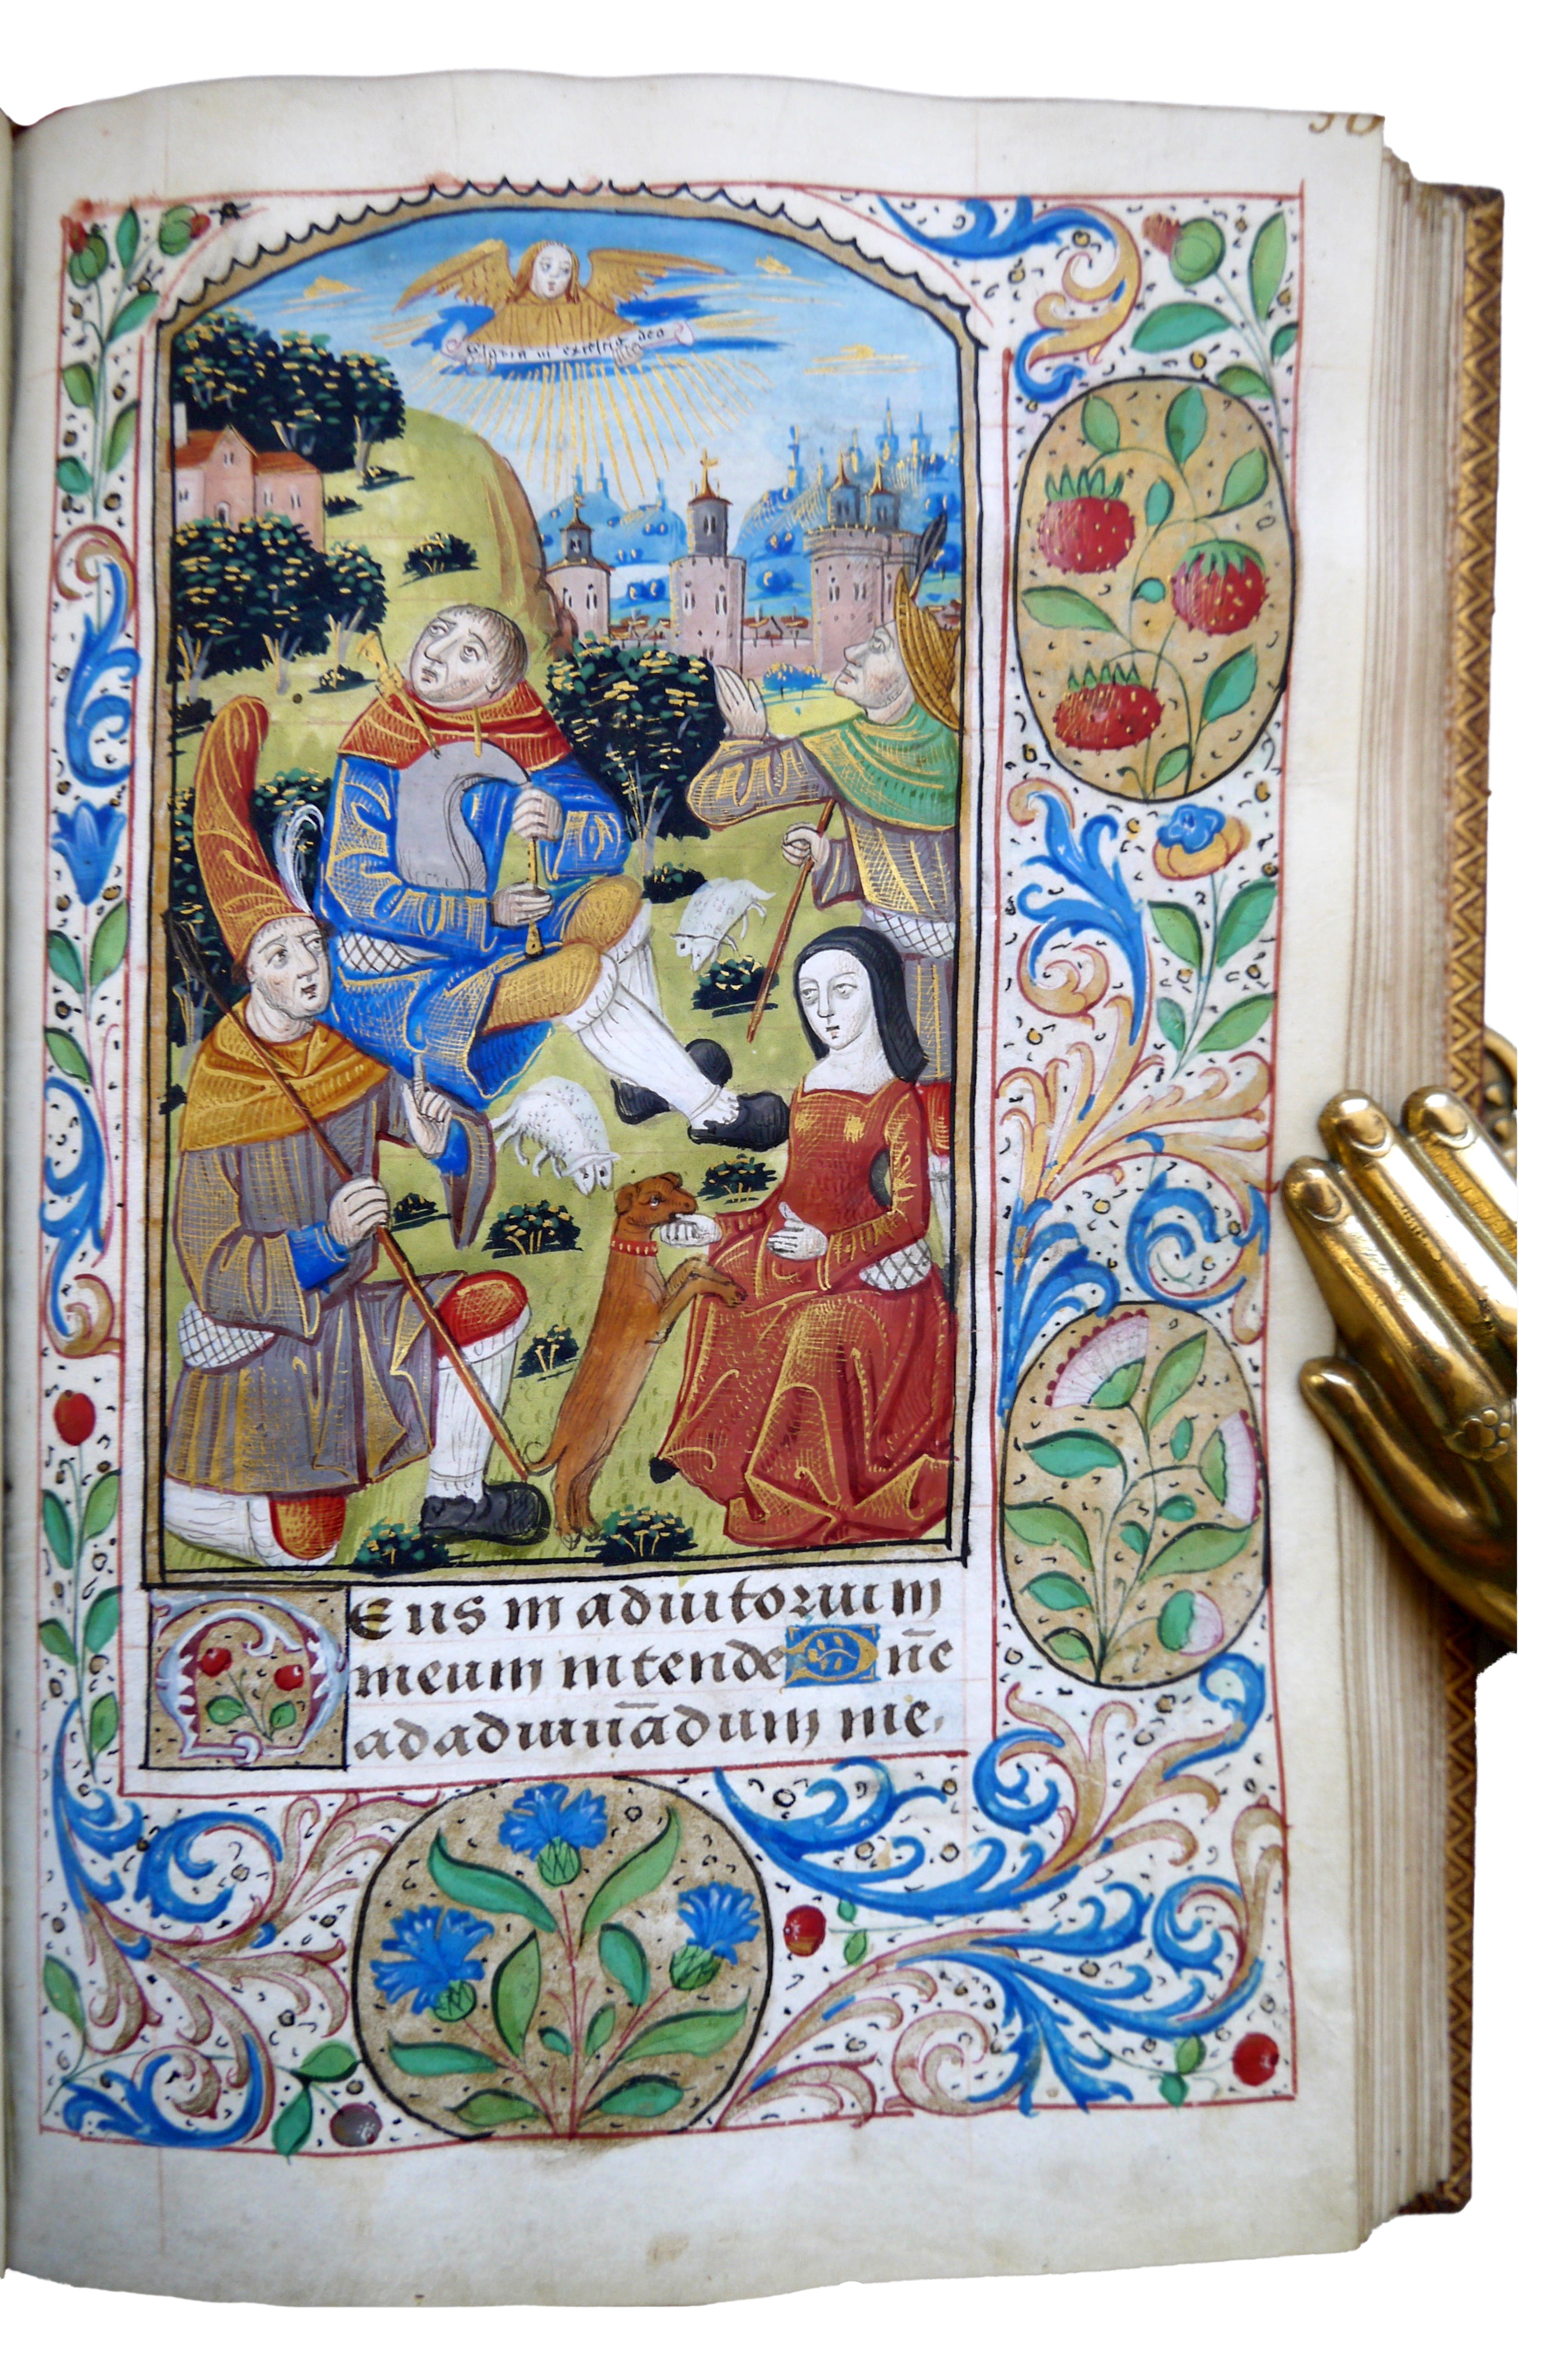 Gloria in excelsis deo
Deus in adiutorium
meum intende Dn̄e
ad adiuuādum me.